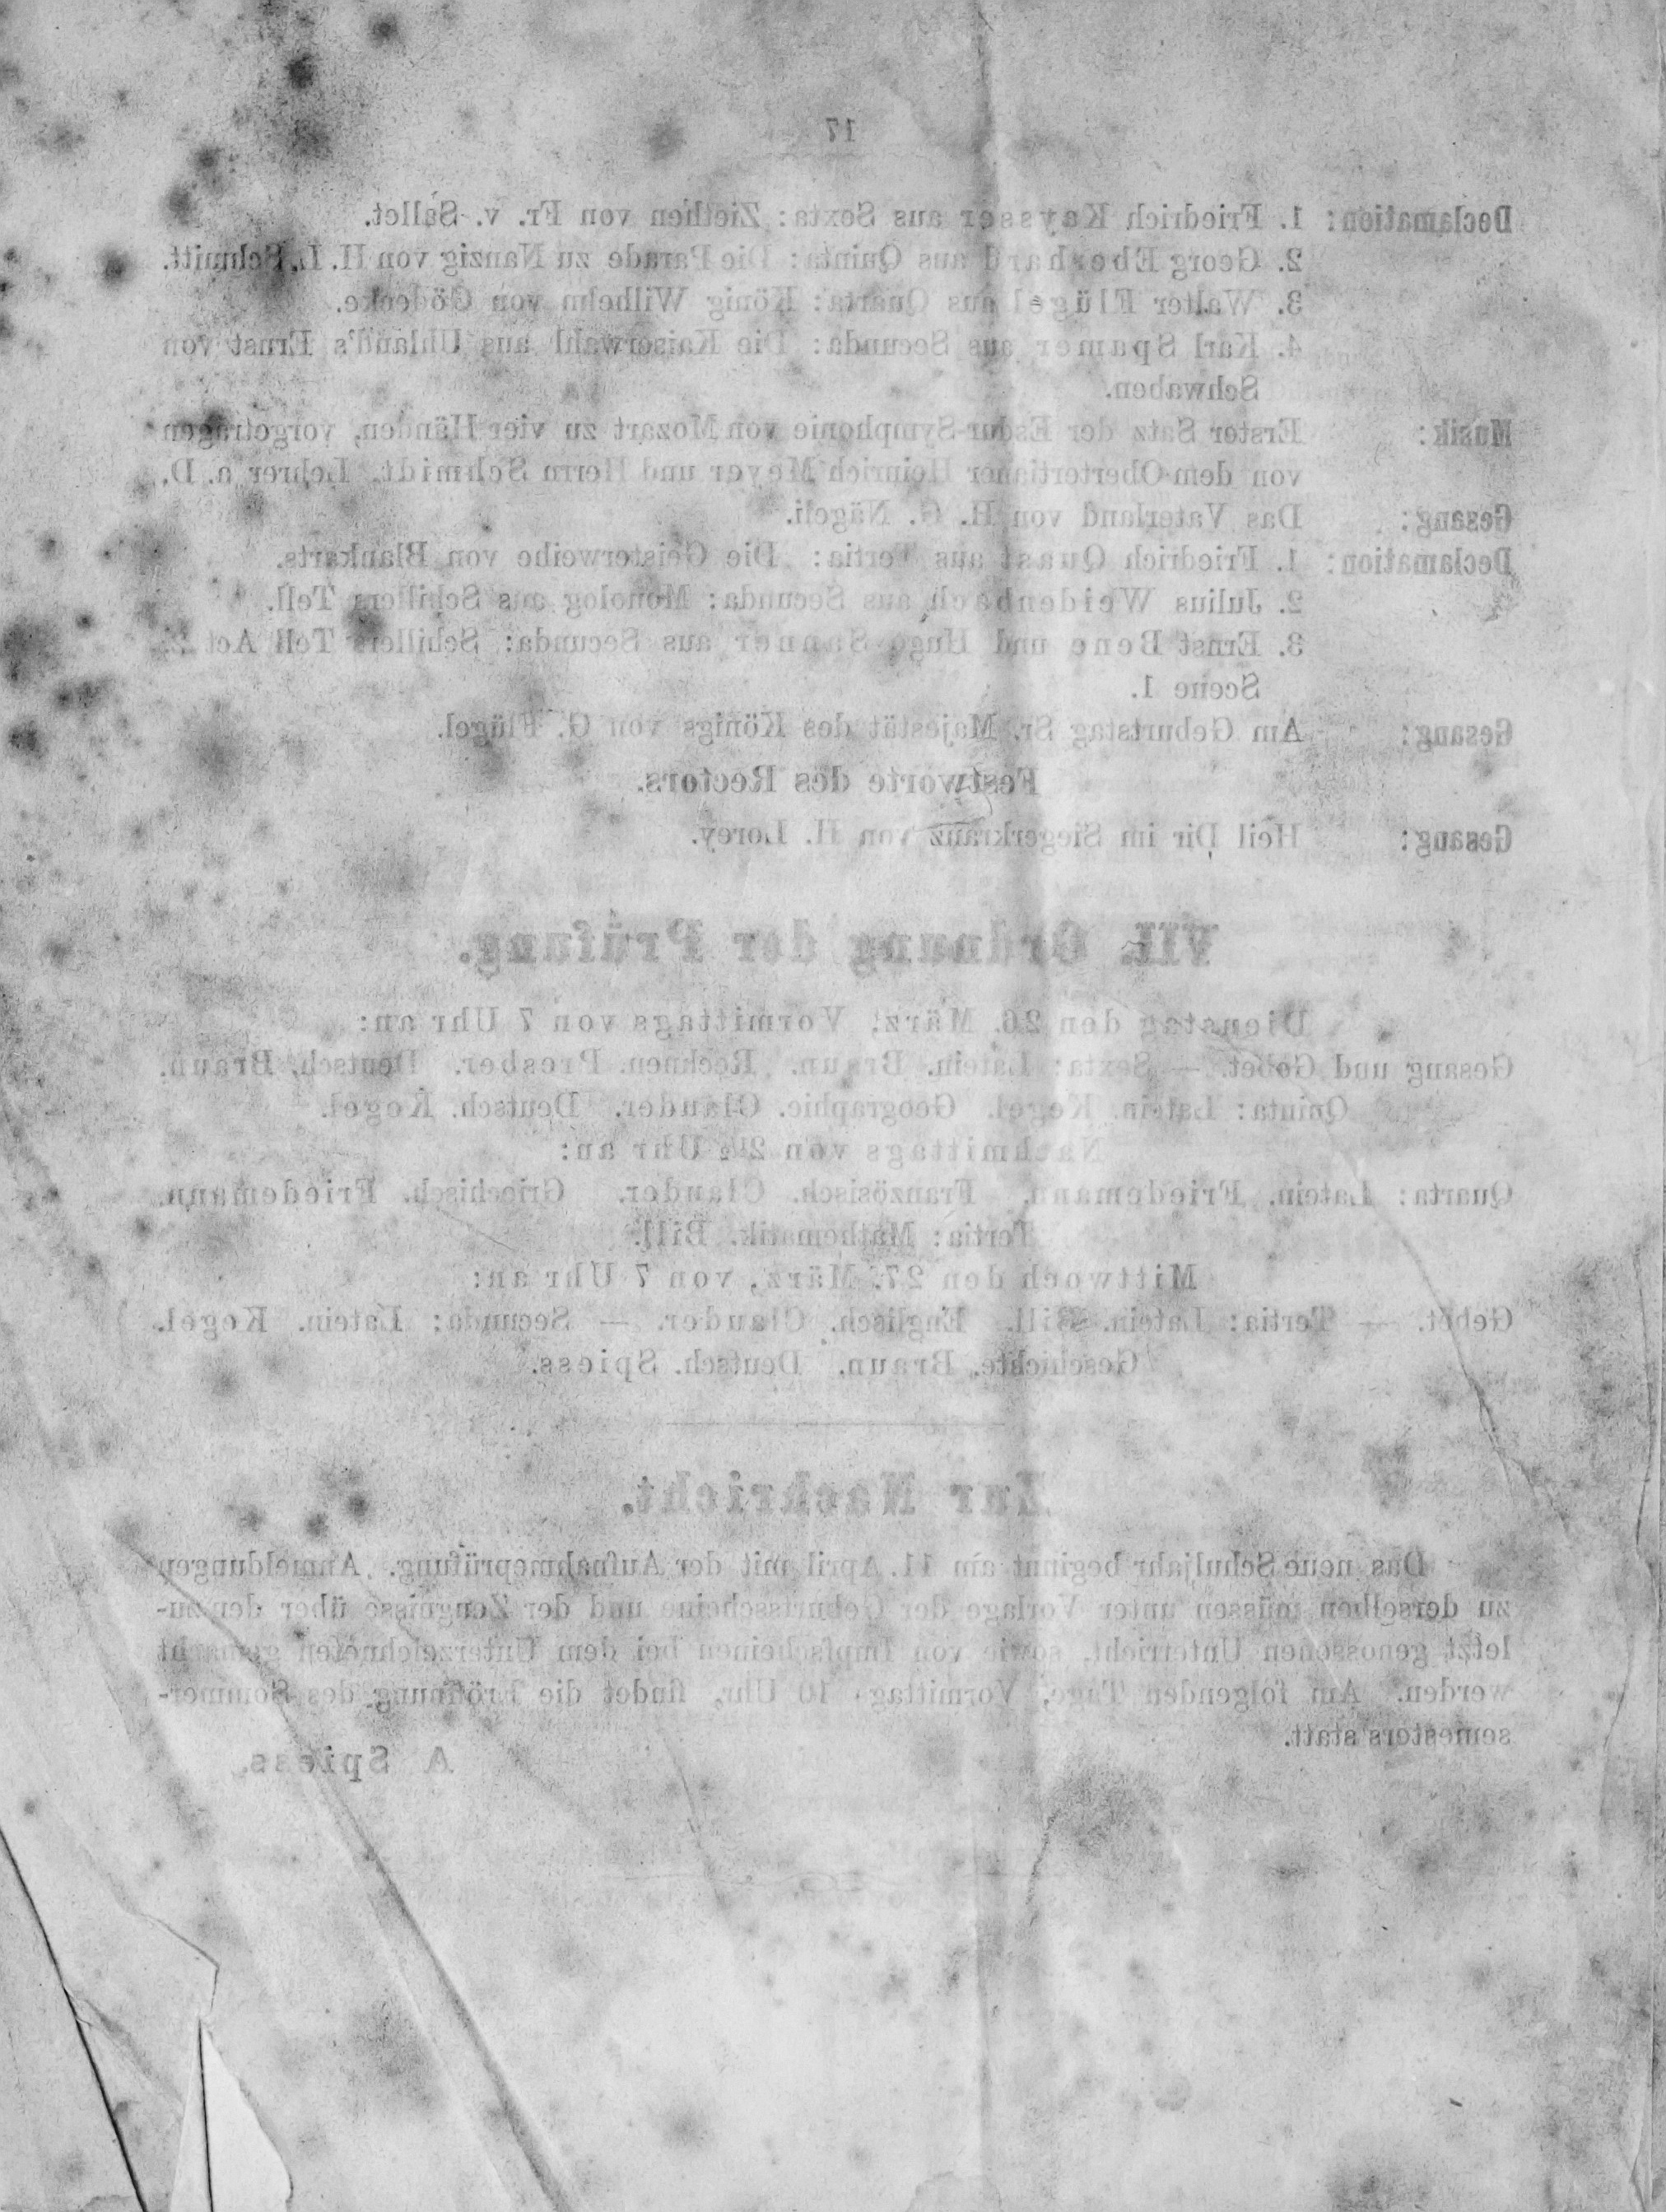 17
Declamation: 1. Friedrich Kaysser aus Sexta: Ziethen von Fr. v. Sallet.
2. Georg Eberhard aus Quinta: Die Parade zu Nanzig von H. L. Schmitt.
3. Walter Flügel aus Quarta: König Wilhelm von Gödecke.
4. Karl Spamer aus Secunda: Die Kaiserwahl aus Uhland's Ernst von
Schwaben.
Musik: Erster Satz der Esdur-Symphonie von Mozart zu vier Händen, vorgetragen
von dem Obertertianer Heinrich Meyer und Herrn Schmidt, Lehrer a. D.
Gesang: Das Vaterland von H. G. Nägeli.
Declamation: 1. Friedrich Quast aus Tertia: Die Geisterweihe von Blankarts.
2. Julius Weidenbach aus Secunda: Monolog aus Schillers Tell.
3. Ernst Bene und Hugo Sanner aus Secunda: Schillers Tell Act
Scene 1.
Gesang: Am Geburtstag Sr. Majestät des Königs von G. Flügel.
Festworte des Rectors.
Gesang: Heil Dir im Siegerkranz von H. Lorey.
VII. Ordnung der Prüfung.
Dienstag den 26. März, Vormittags von 7 Uhr an:
Gesang und Gebet. — Sexta: Latein. Braun. Rechnen. Presber. Deutsch. Braun.
Quinta: Latein. Kegel. Geographie. Clauder. Deutsch. Kegel.
Nachmittags von 2½ Uhr an:
Quarta: Latein. Friedemann. Französisch. Clauder. Griechisch. Friedemann.
Tertia: Mathematik. Bill.
Mittwoch den 27. März, von 7 Uhr an:
Gebet. — Tertia: Latein. Bill. Englisch. Clauder. — Secunda: Latein. Kegel.
Geschichte. Braun. Deutsch. Spiess.
Zur Nachricht.
Das neue Schuljahr beginnt am 11. April mit der Aufnahmeprüfung. Anmeldungen
zu derselben müssen unter Vorlage der Geburtsscheine und der Zeugnisse über den zu-
letzt genossenen Unterricht, sowie von Impfscheinen bei dem Unterzeichneten gemacht
werden. Am folgenden Tage, Vormittag 10 Uhr, findet die Eröffnung des Sommer-
semesters statt.
A Spiess.